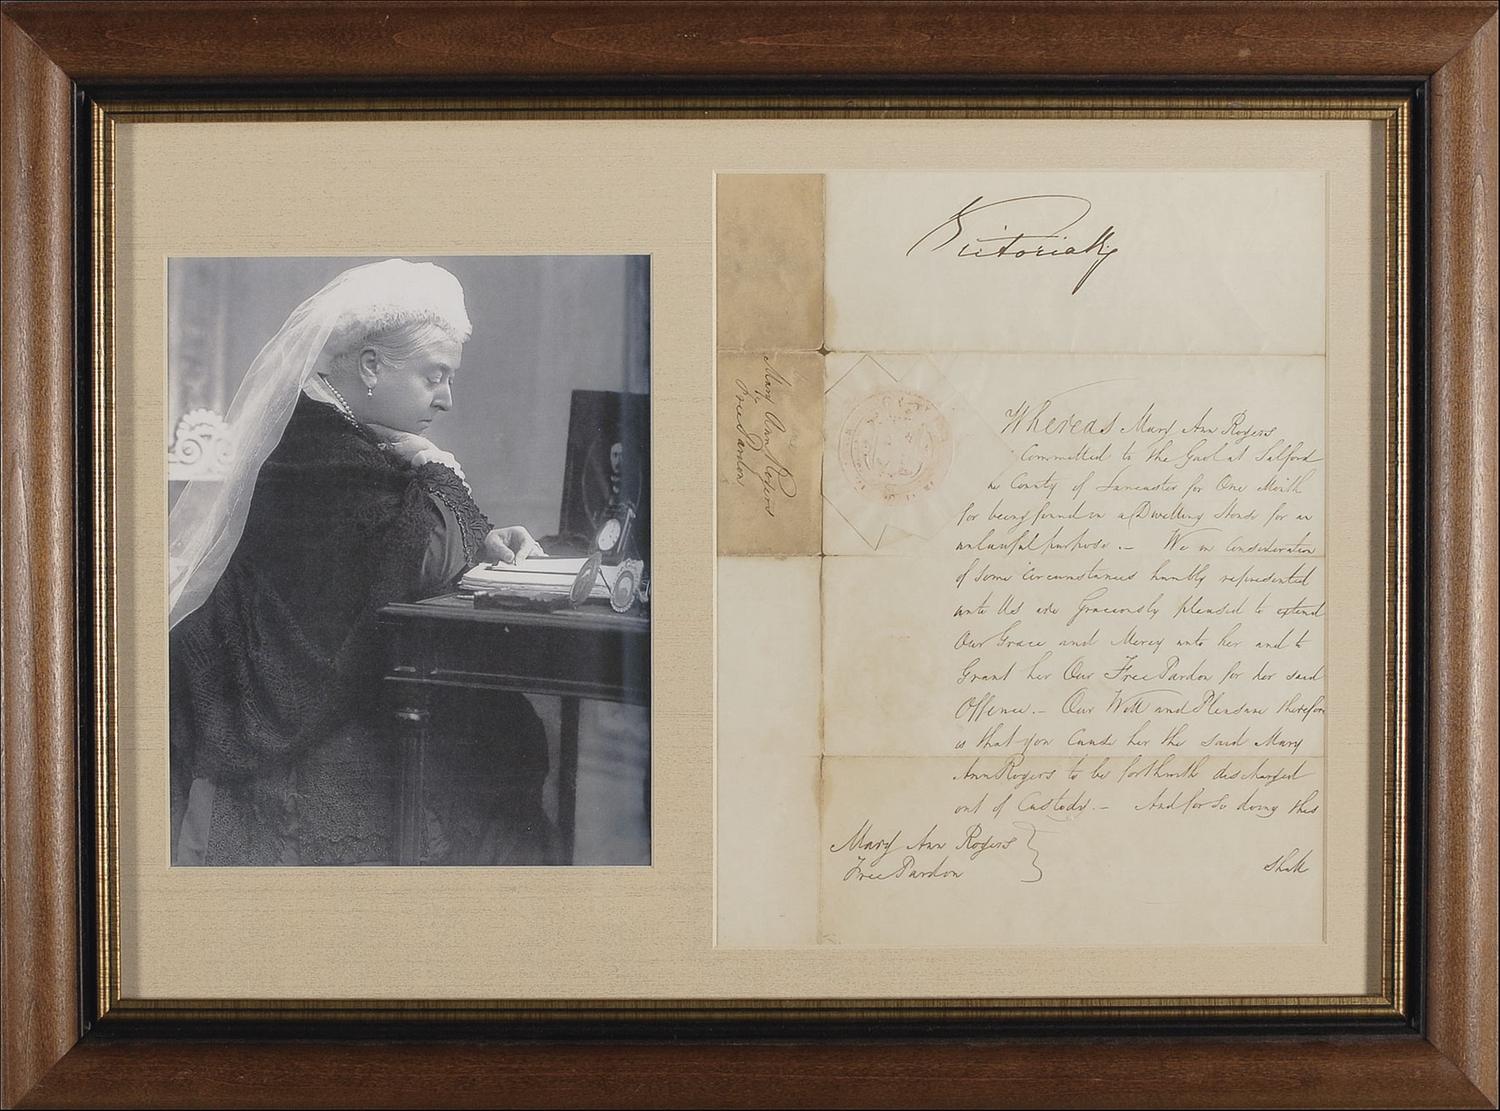 Victoria R
Mary Ann Rogers
Free Pardon
Whereas Mary Ann Rogers
Committed to the Gaol at Salford
County of Lancaster for One Month
for being found in a Dwelling House for an
unlawful purpose. — We in consideration
of some Circumstances humbly represented
unto Us are Graciously pleased to extend
Our Grace and Mercy unto her and to
Grant her Our Free Pardon for her said
Offence. — Our Will and Pleasure therefore
is that you Cause her the said Mary
Ann Rogers to be forthwith discharged
out of Custody. — And for so doing this
Mary Ann Rogers
Free Pardon
Shall